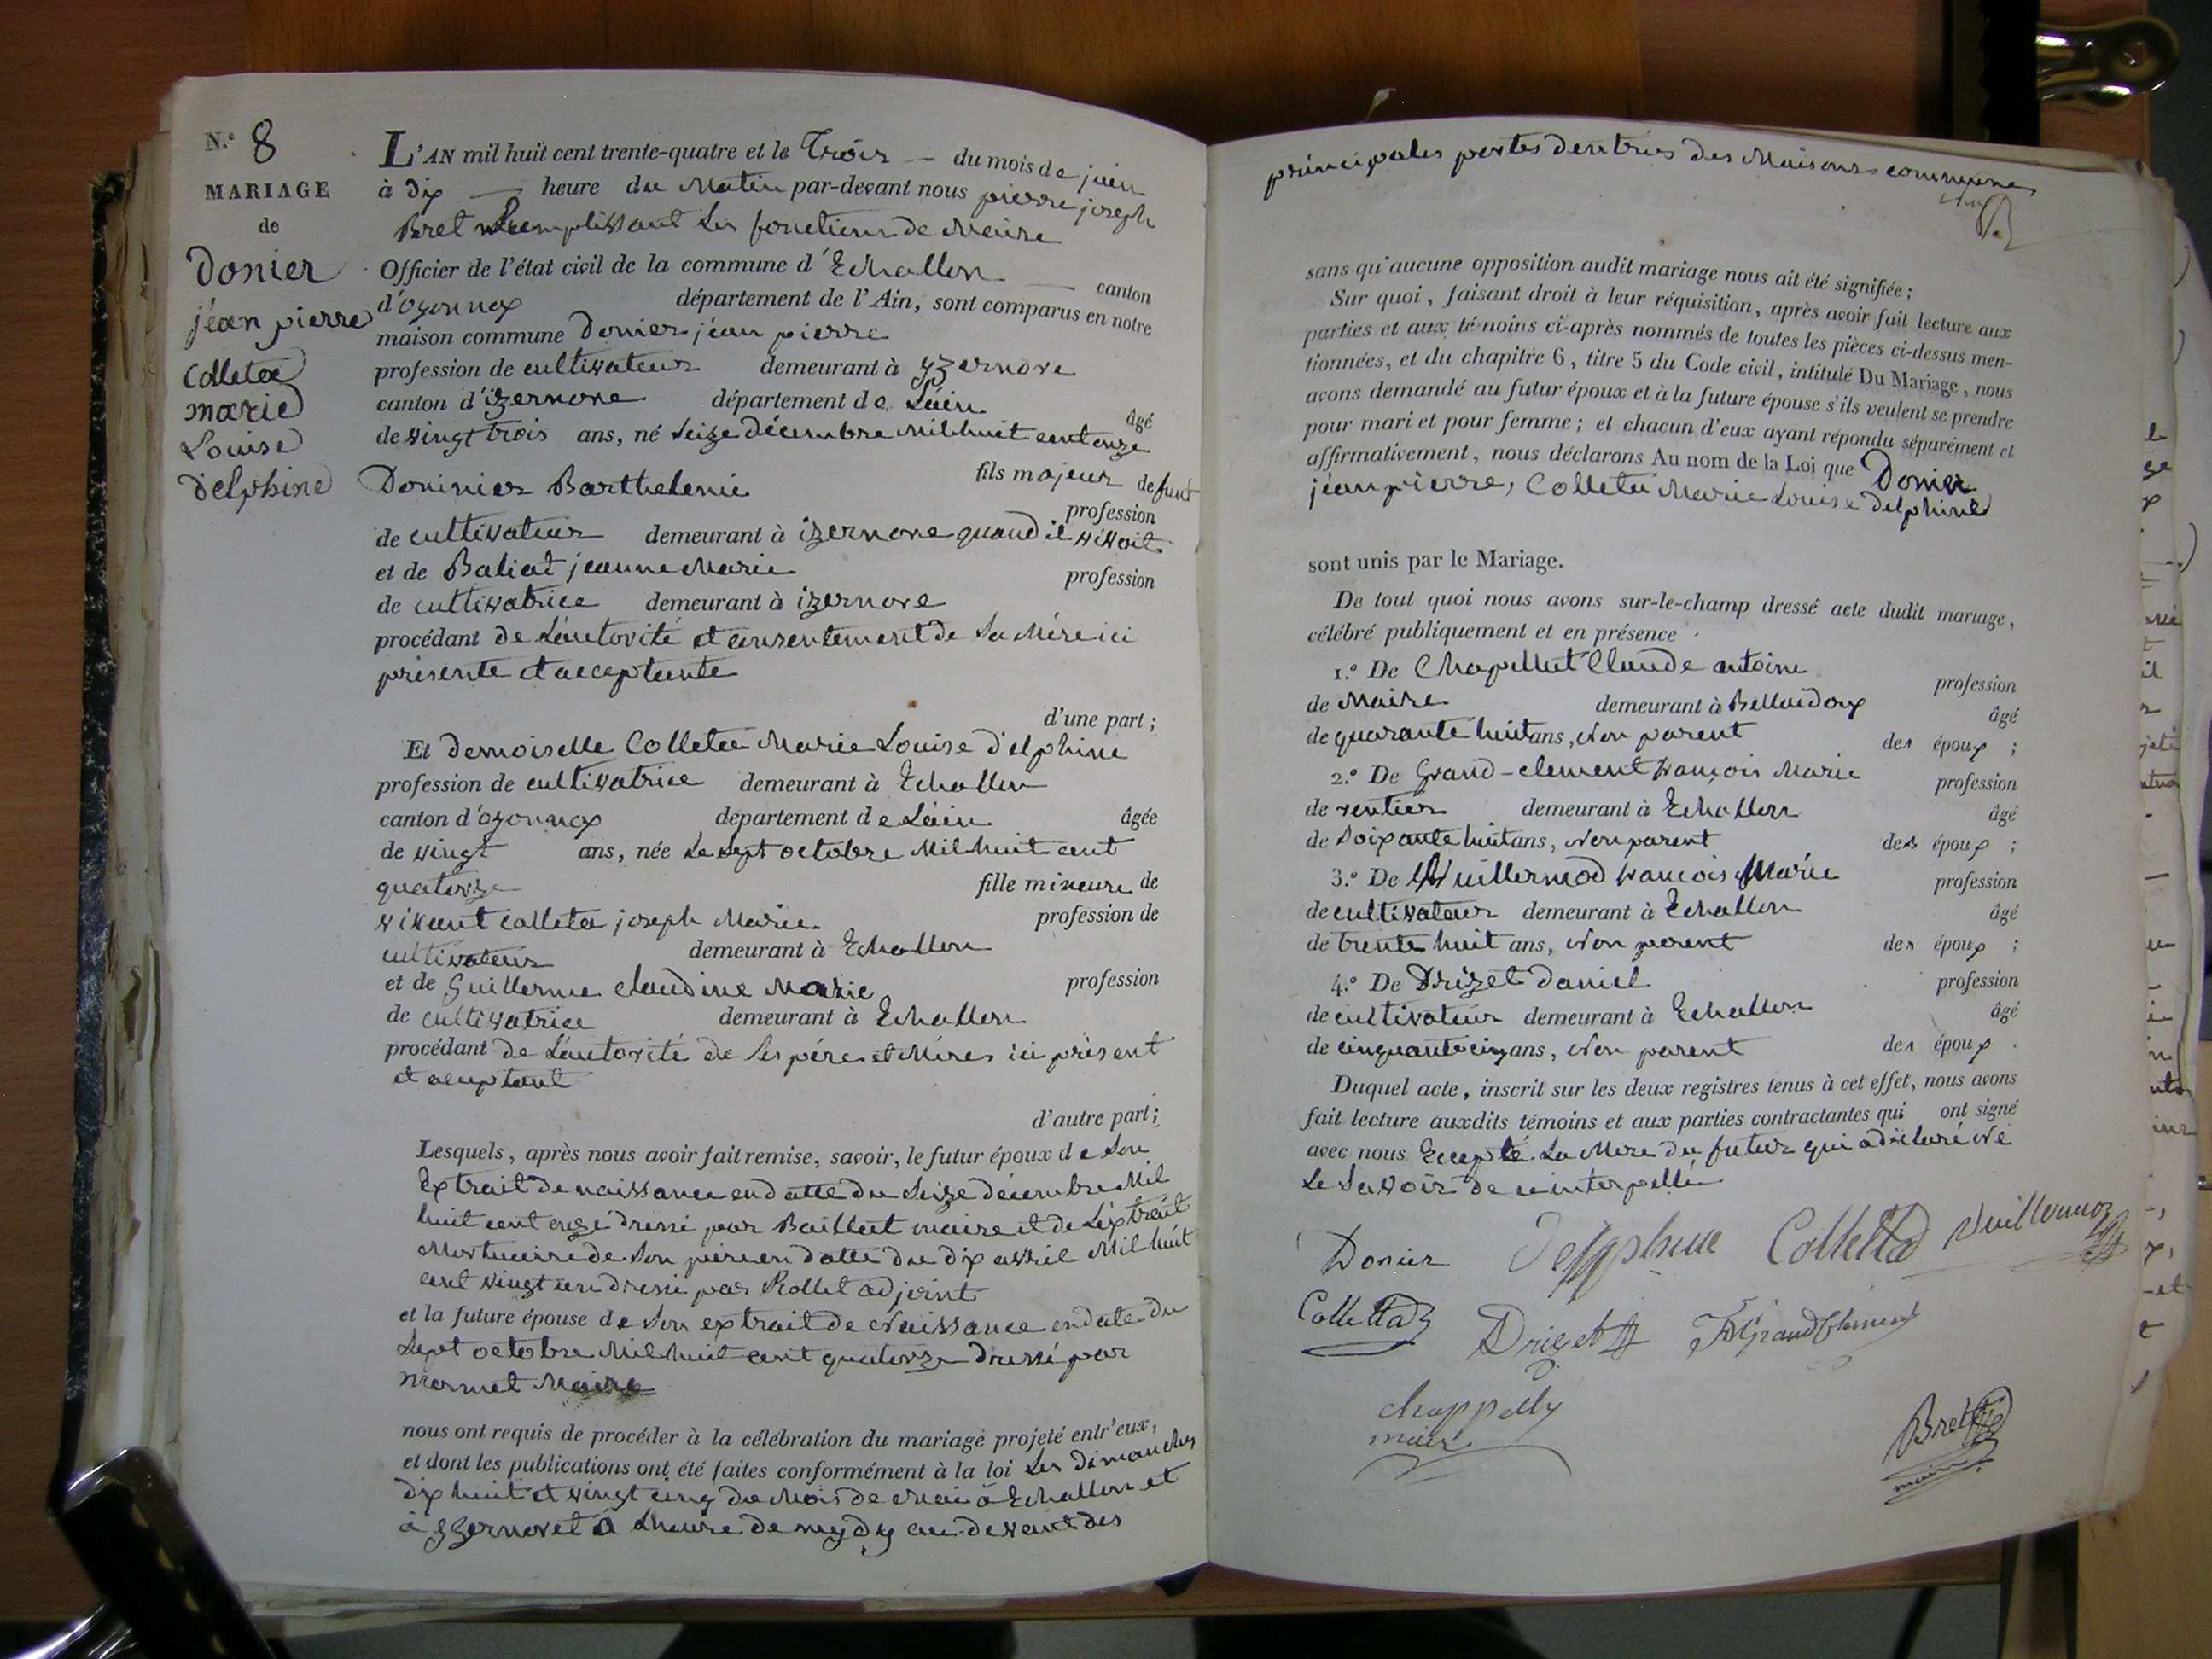 N.o 8
MARIAGE
de
Donier
jéan pierre
Colleta
marie
Louise
delphine
L'AN mil huit cent trente-quatre et le Trois — du mois de juin
à dix — heure du Matin par-devant nous pierre joseph
Bret Remplissant Les fonctions de Maire
Officier de l'état civil de la commune d'Echallon — canton
d'oyonnax département de l'Ain, sont comparus en notre
maison commune Donier jéan pierre
profession de cultivateur demeurant à yzernore
canton d'izernore département de Lain âgé
de vingt trois ans, né Seize décembre Mil huit cent onze
fils majeur defunt
Doninier Barthelemie profession
de cultivateur demeurant à izernore quand il vivoit
et de Baliat jeanne Marie profession
de cultivatrice demeurant à izernore
procédant de Lautorité et consentement de Sa Mére ici
présente et acceptante
d'une part ;
Et demoiselle Colleta Marie Louise delphine
profession de cultivatrice demeurant à Echallon
canton d'oyonnax département de Lain âgée
de vingt ans, née Le sept octobre Mil huit cent
quatorze fille mineure de
vivant colleta joseph Marie profession de
cultivateur demeurant à Echallon
et de Guillerme claudine Marie profession
de cultivatrice demeurant à Echallon
procédant de Lautorité de Ses pére et Méres ici présent
et aceptant
d'autre part ;
Lesquels, après nous avoir fait remise, savoir, le futur époux de Son
Extrait de naissance en datte du Seize décembre Mil
huit cent onze dressé par Baillat maire et de Lextrait
Mortuaire de Son père en datte du dix avril Mil huit
cent vingt un dressé par Rollet adjoint
et la future épouse de Son extrait de Naissance en date du
Sept octobre Mil huit cent quatorze dressé par
mermet Maire
nous ont requis de procéder à la célébration du mariage projeté entr'eux,
et dont les publications ont été faites conformément à la loi Les dimanches
dix huit et vingt cinq du Mois de Mai à Echallon et
à yzernore à Lheure de mydy au devant des
principales portes dentrées des Maisons communes
sans qu'aucune opposition audit mariage nous ait été signifiée ;
Sur quoi, faisant droit à leur réquisition, après avoir fait lecture aux
parties et aux témoins ci-après nommés de toutes les pièces ci-dessus men-
tionnées, et du chapitre 6, titre 5 du Code civil, intitulé Du Mariage, nous
avons demandé au futur époux et à la future épouse s'ils veulent se prendre
pour mari et pour femme ; et chacun d'eux ayant répondu séparément et
affirmativement, nous déclarons Au nom de la Loi que Donier
jéan pierre, Colleta Marie Louise delphine
sont unis par le Mariage.
De tout quoi nous avons sur-le-champ dressé acte dudit mariage,
célébré publiquement et en présence
1.o De Chapellut Claude antoine profession
de Maire demeurant à Bellaidoux âgé
de quarante huit ans, Non parent des époux ;
2.o De Grand-clement francois Marie profession
de rentier demeurant à Echallon âgé
de Soixante huit ans, Non parent des époux ;
3.o De Vuillermod francois Marie profession
de cultivateur demeurant à Echallon âgé
de trente huit ans, Non parent des époux ;
4.o De Drizet Daniel profession
de cultivateur demeurant à Echallon âgé
de cinquante cinq ans, Non parent des époux .
Duquel acte, inscrit sur les deux registres tenus à cet effet, nous avons
fait lecture auxdits témoins et aux parties contractantes qui ont signé
avec nous Excepté La Mere du futur qui a déclaré Ne
Le Savoir de ce interpellé
Donier Delphine Colletta Vuillermoz
Colletta Drizet FM GrandClément
chappelly
maire
Bret
maire